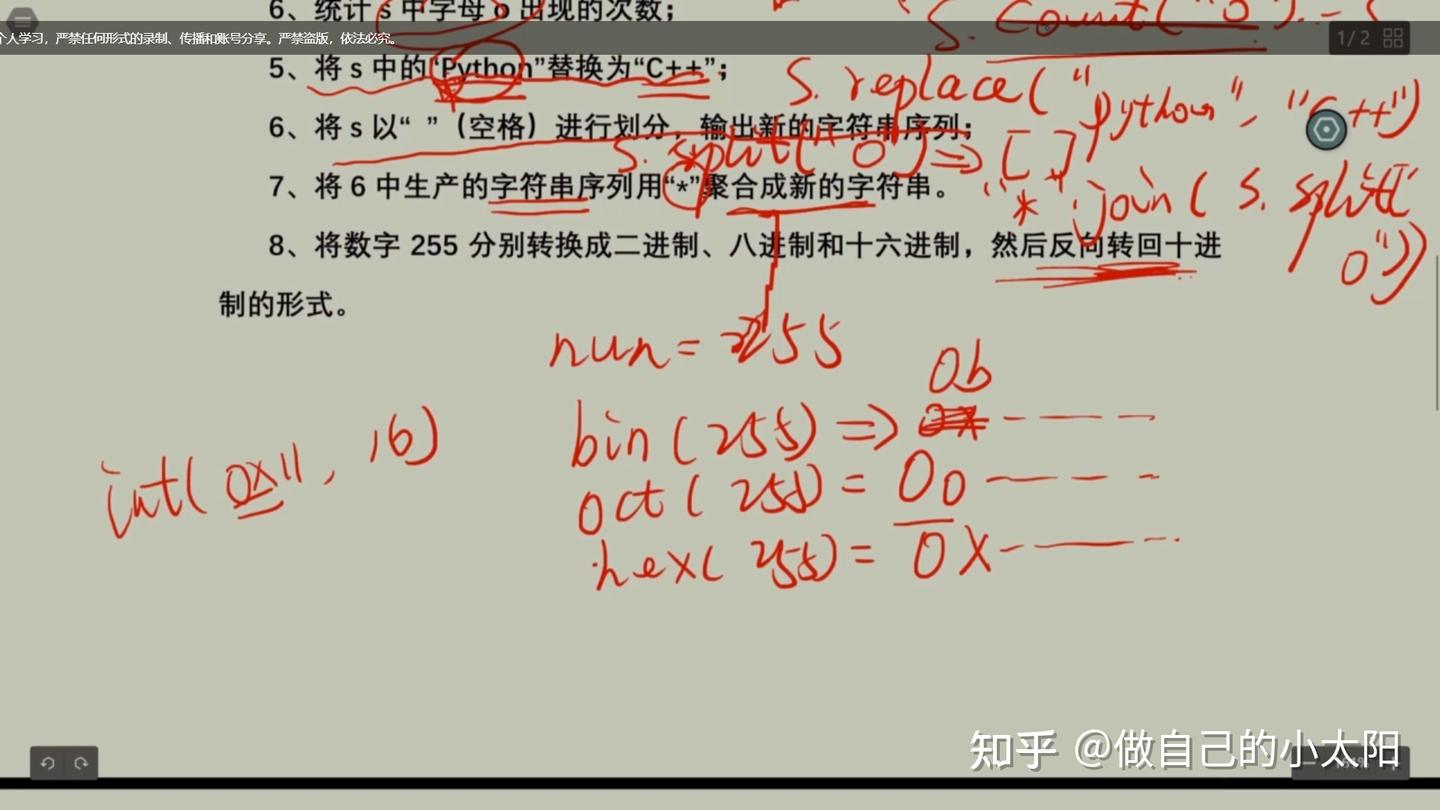 6、统计 s 中字母 o 出现的次数；
s. count("o").
个人学习，严禁任何形式的录制、传播和账号分享。严禁盗版，依法必究。
1/2
5、将 s 中的“Python”替换为“C++”；
s. replace("python", "C++")
6、将 s 以“ ”（空格）进行划分，输出新的字符串序列；
s. split("0") => [ ]
7、将 6 中生产的字符串序列用“*”聚合成新的字符串。
"*".join( s. split("0"))
8、将数字 255 分别转换成二进制、八进制和十六进制，然后反向转回十进
制的形式。
nun = 255
0b
bin(255) =>
int(0x11, 16)
oct(255) = 0o
hex(255) = 0x
知乎 @做自己的小太阳